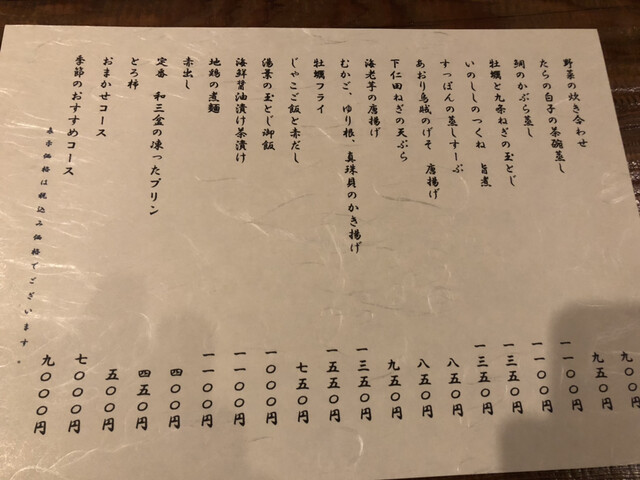 野菜の炊き合わせ 九〇〇円
たらの白子の茶碗蒸し 九五〇円
鯛のかぶら蒸し 一一〇〇円
牡蠣と九条ねぎの玉とじ 一一〇〇円
いのししのつくね 旨煮 一三五〇円
すっぽんの蒸しすーぷ 一三五〇円
あおり烏賊のげそ 唐揚げ 八五〇円
下仁田ねぎの天ぷら 八五〇円
海老芋の唐揚げ 九五〇円
むかご、ゆり根、真珠貝のかき揚げ 一三五〇円
牡蠣フライ 一五五〇円
じゃこご飯と赤だし 七五〇円
湯葉の玉とじ御飯 一〇〇〇円
海鮮醤油漬け茶漬け 一一〇〇円
地鶏の煮麺 一一〇〇円
赤出し 四〇〇円
定番 和三盆の凍ったプリン 四五〇円
とろ柿 五〇〇円
おまかせコース 七〇〇〇円
季節のおすすめコース 九〇〇〇円
表示価格は税込み価格でございます。